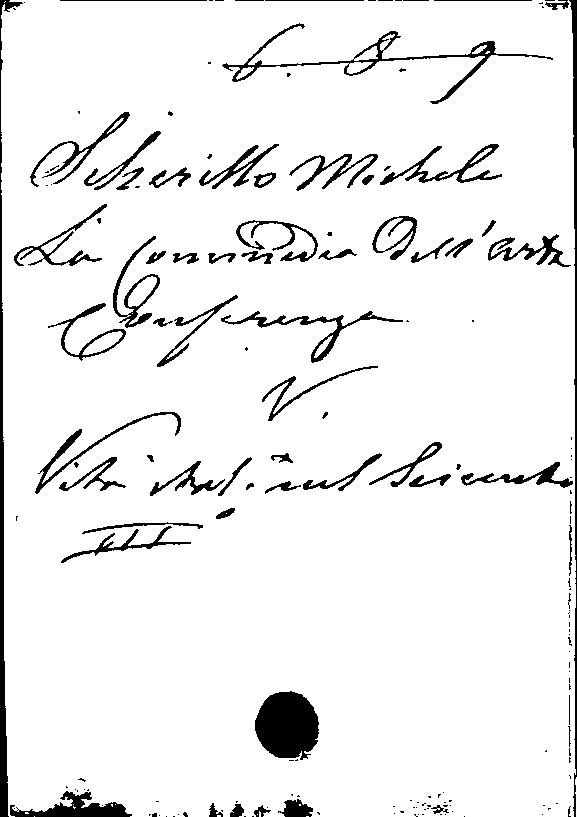 6. 8. 9
Scherillo Michele
La commedia dell'arte
Conferenza
V.
Vita ital. nel Seicento
III